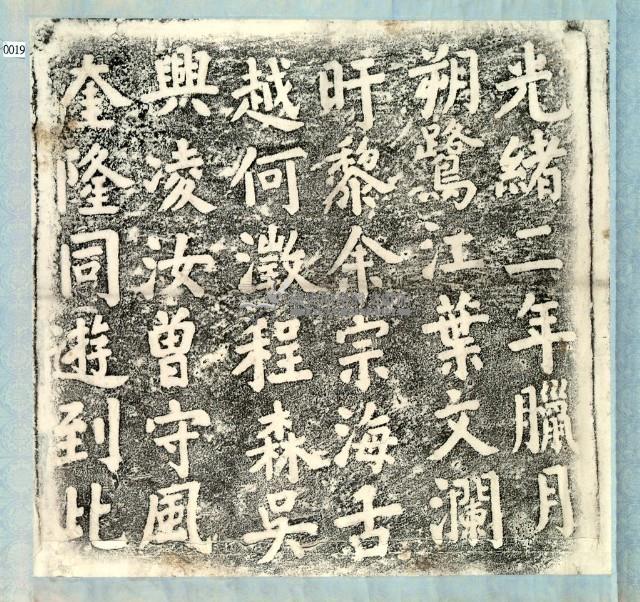 0019
光緒二年臘月
朔鷺江葉文瀾
盱黎余宗海古
越何澂程森吳
興凌汝曾守風
奎隆同遊到此